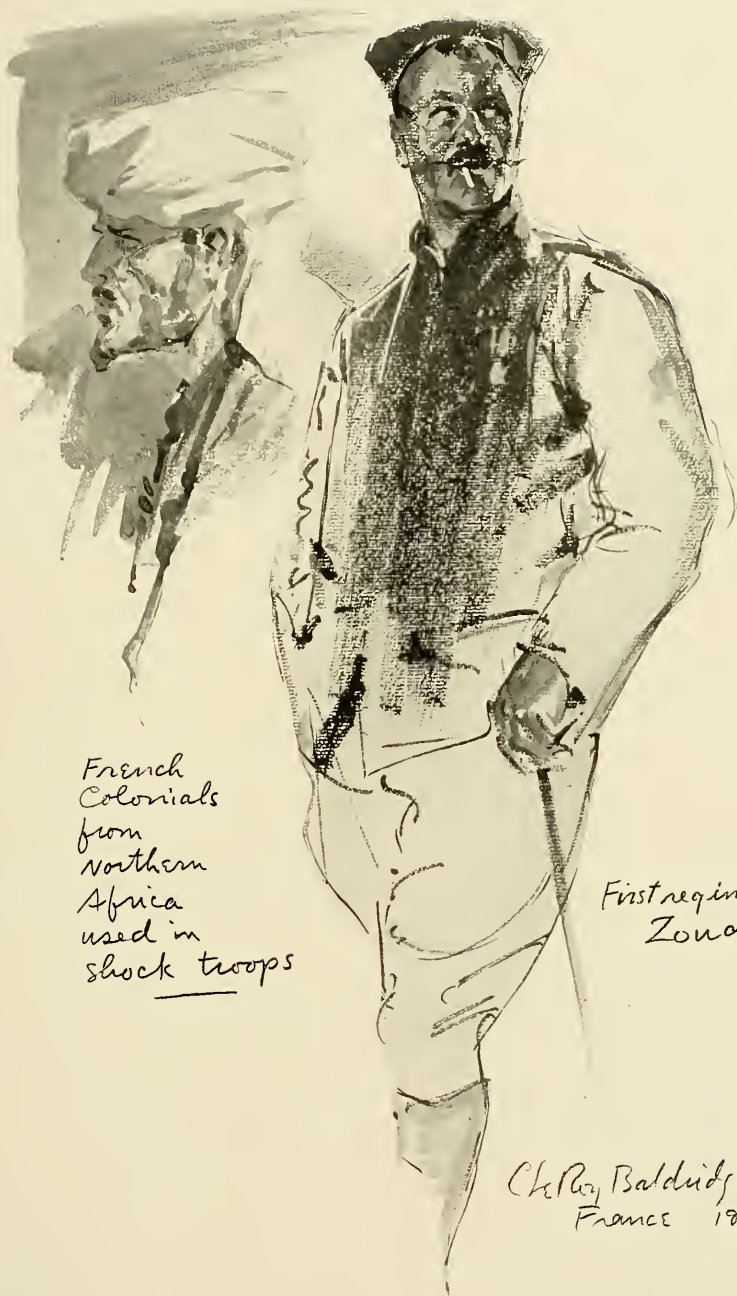 French
Colonials
from
Northern
Africa
used in
shock troops
First regim
Zoua
C LeRoy Baldridg
France 18